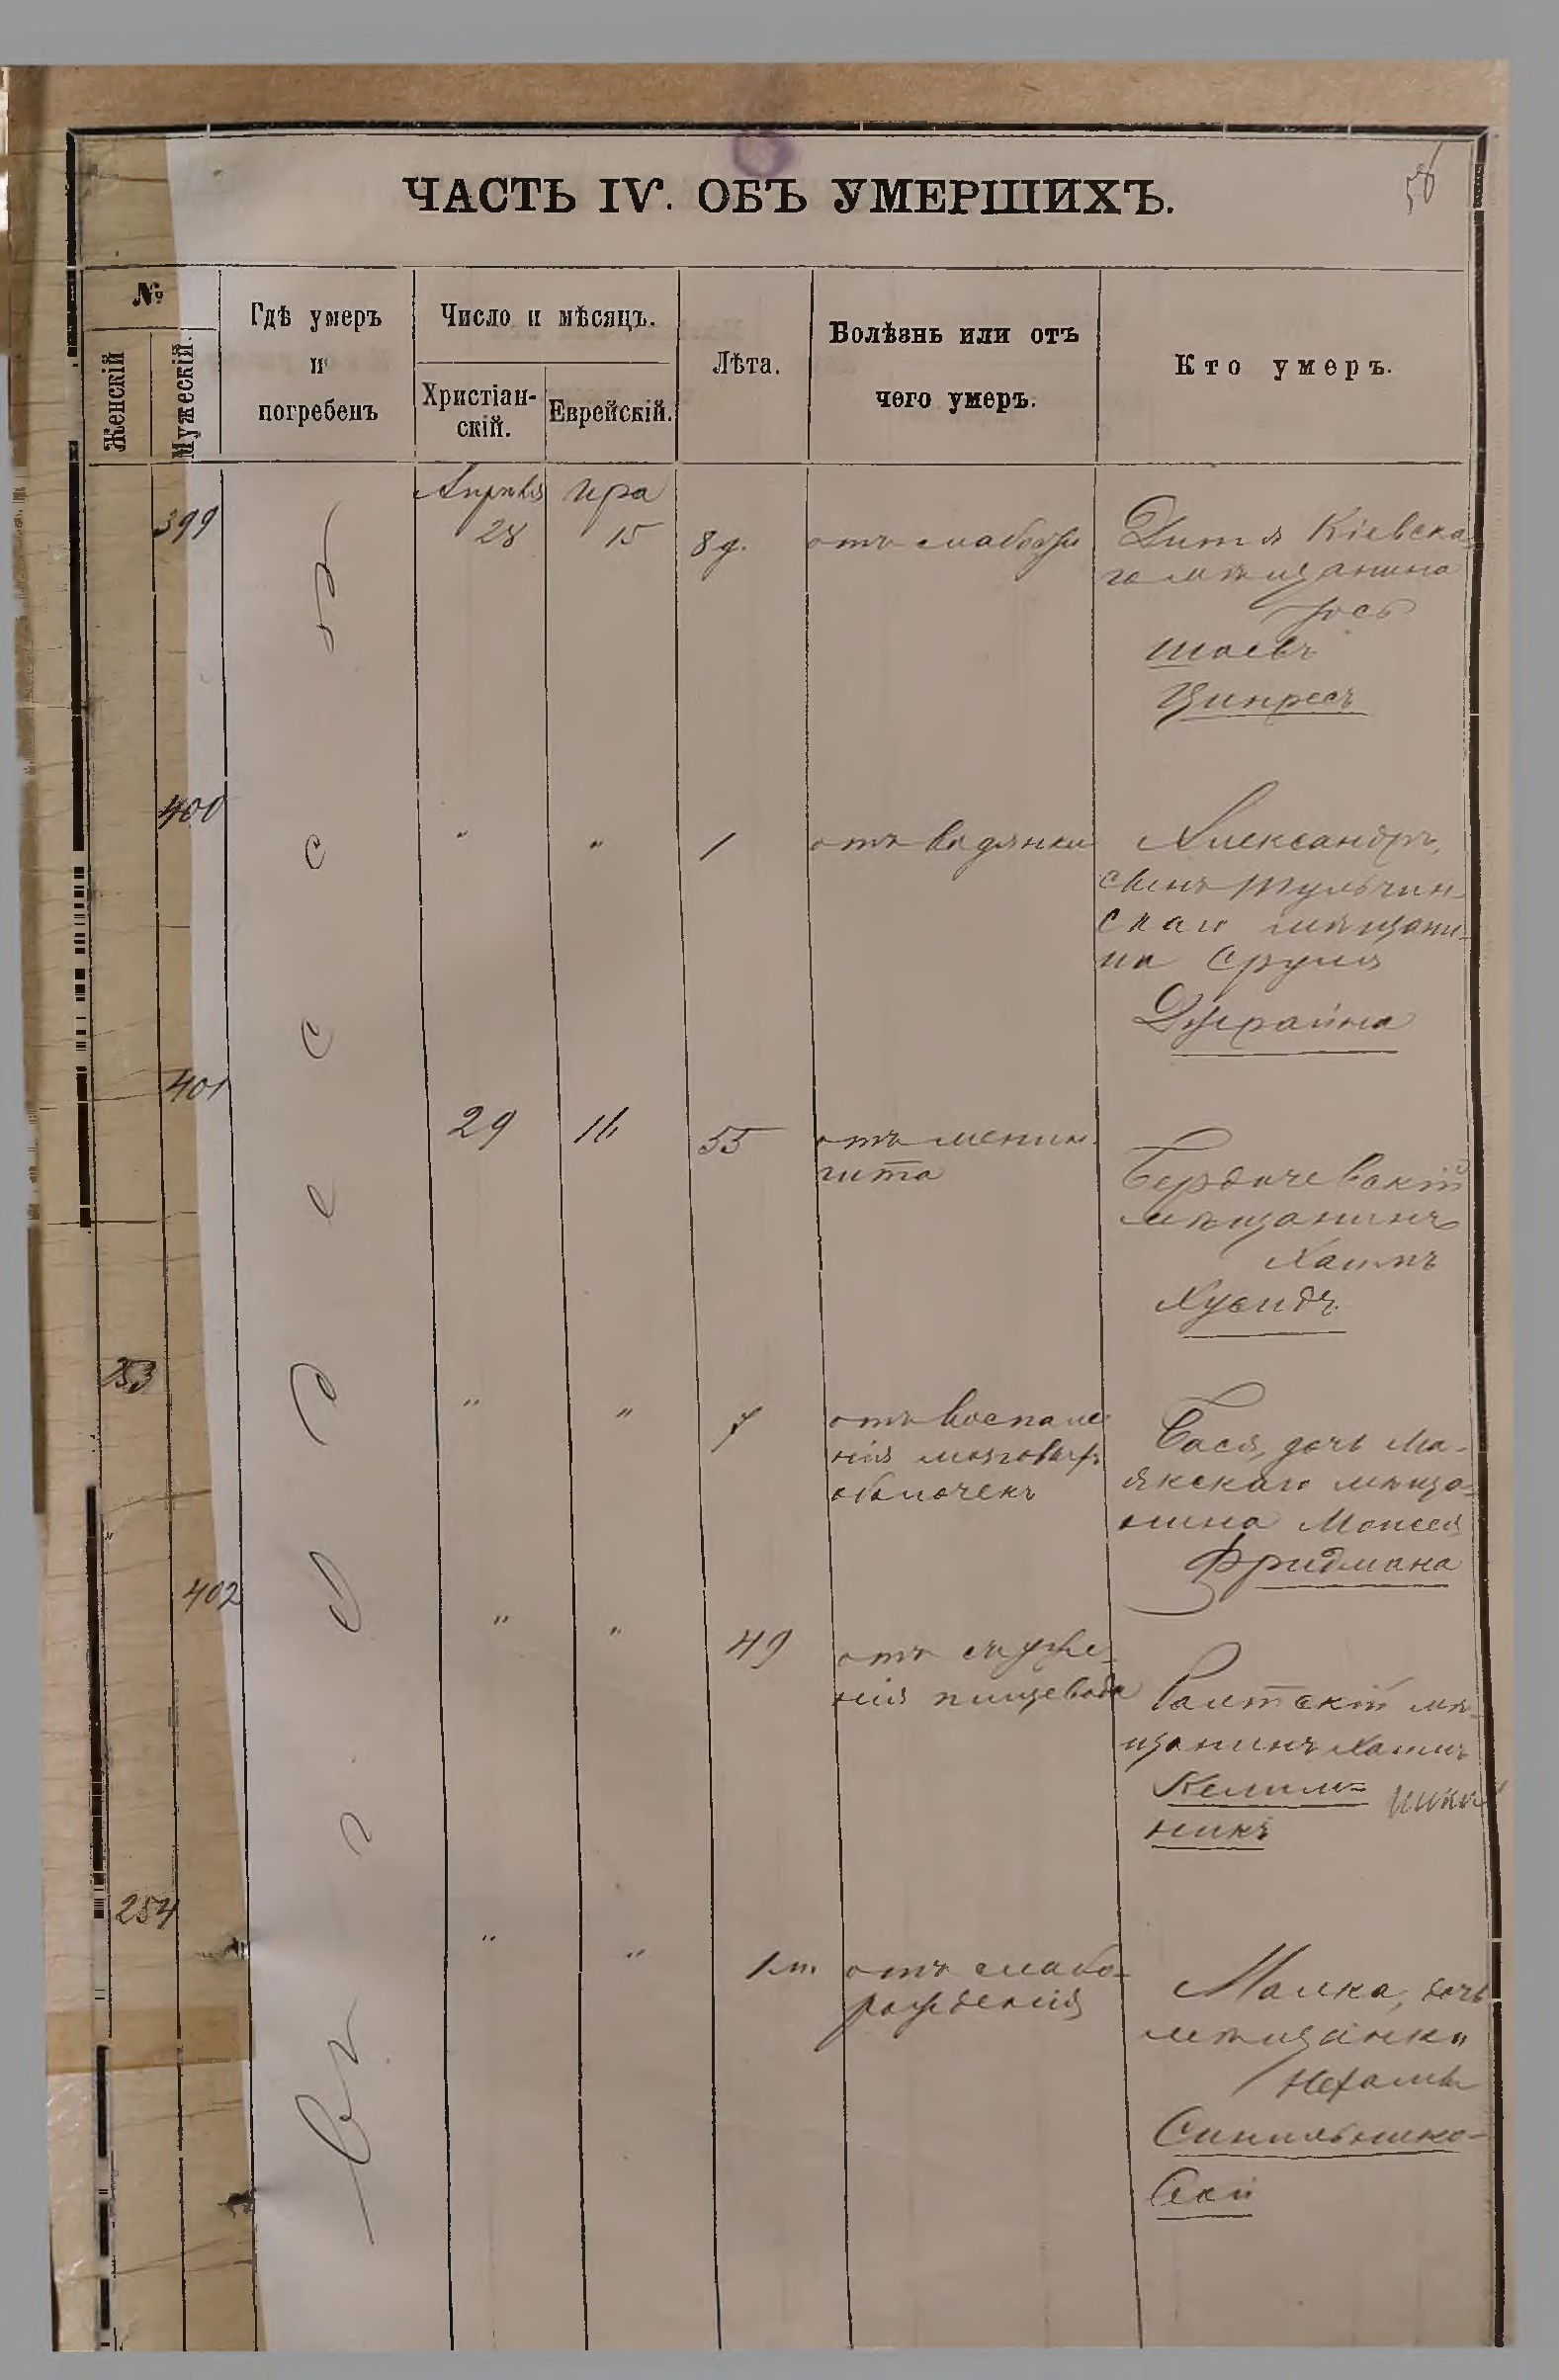 ЧАСТЬ IV. ОБЪ УМЕРШИХЪ.
58
№
Женскій
Мужескій.
Гдѣ умеръ
и
погребенъ
Число и мѣсяцъ.
Христіан-
скій.
Еврейскій.
Лѣта.
Болѣзнь или отъ
чего умеръ.
Кто умеръ.
399
Апрѣля
28
Ира
15
8 д.
отъ слабости
Дитя Кіевска-
го мѣщанина
Іось
Шаевъ
Ципресъ
400
"
"
1
отъ водянки
Александръ,
сынъ Тульчин-
скаго мѣщани-
на Сруля
Джрайна
401
29
16
55
отъ менин-
гита
Бердичевскій
мѣщанинъ
Хаимъ
Хусидъ
253
"
"
7
отъ воспале
нія мозговыхъ
оболочекъ
Бася, дочь Ма-
якскаго мѣща-
нина Моисея
Фридмана
402
"
"
49
отъ съуже-
нія пищевода
Балтскій мѣ-
щанинъ Хаимъ
Келим=
никъ
254
"
"
1 м.
отъ слабо-
рожденія
Малка, дочь
мѣщанки
Нехамы
Синильнико-
вой